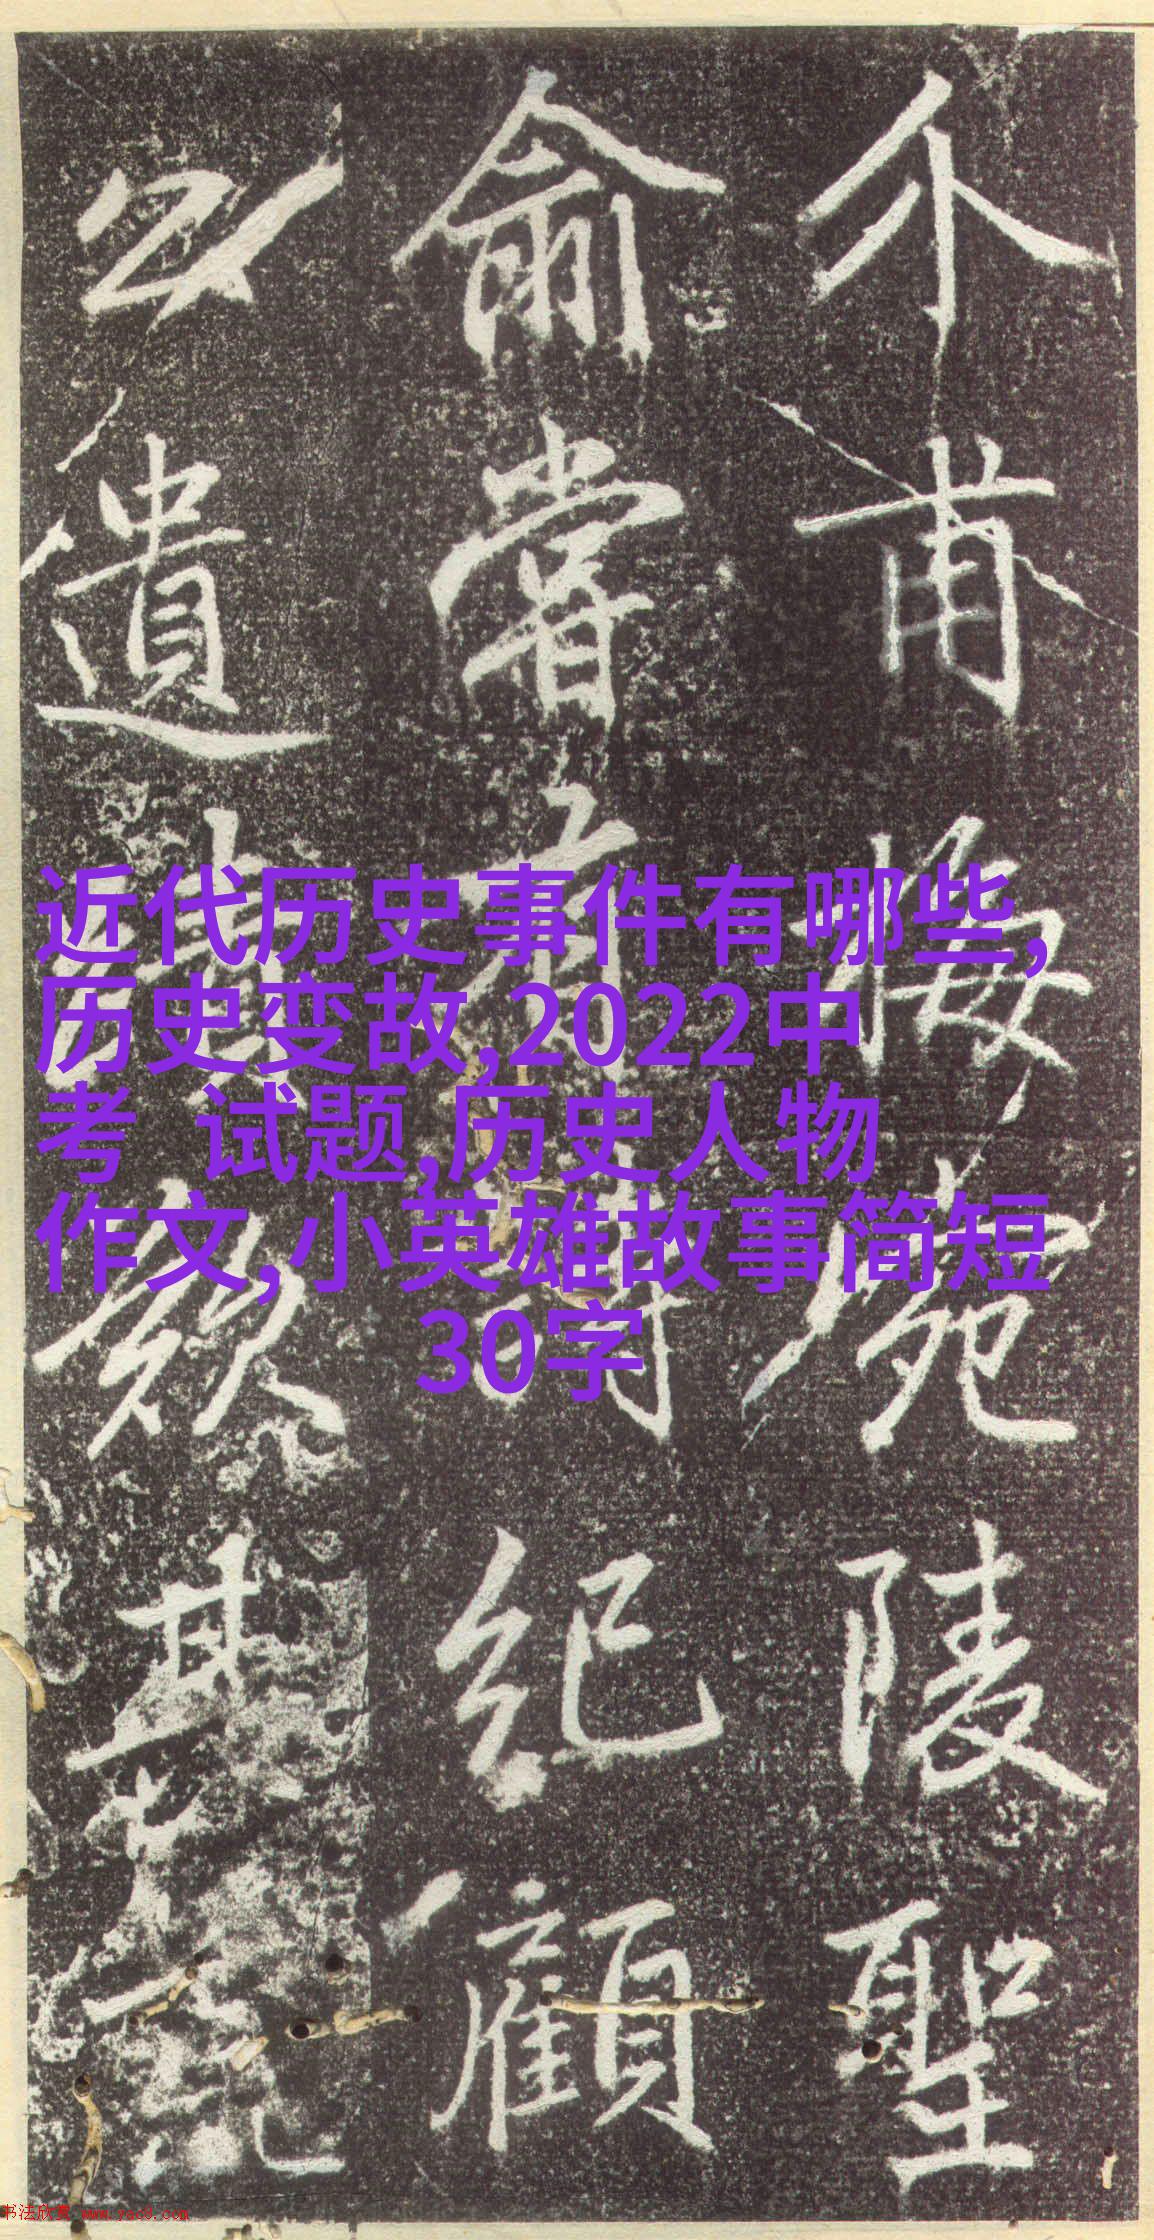 近代历史事件有哪些,
历史变故,2022中
考 试题,历史人物
作文,小英雄故事简短
30字
介甫 梅宛陵聖
俞嘗有時紀顧
公遺
其
书法欣赏 www.yac8.com